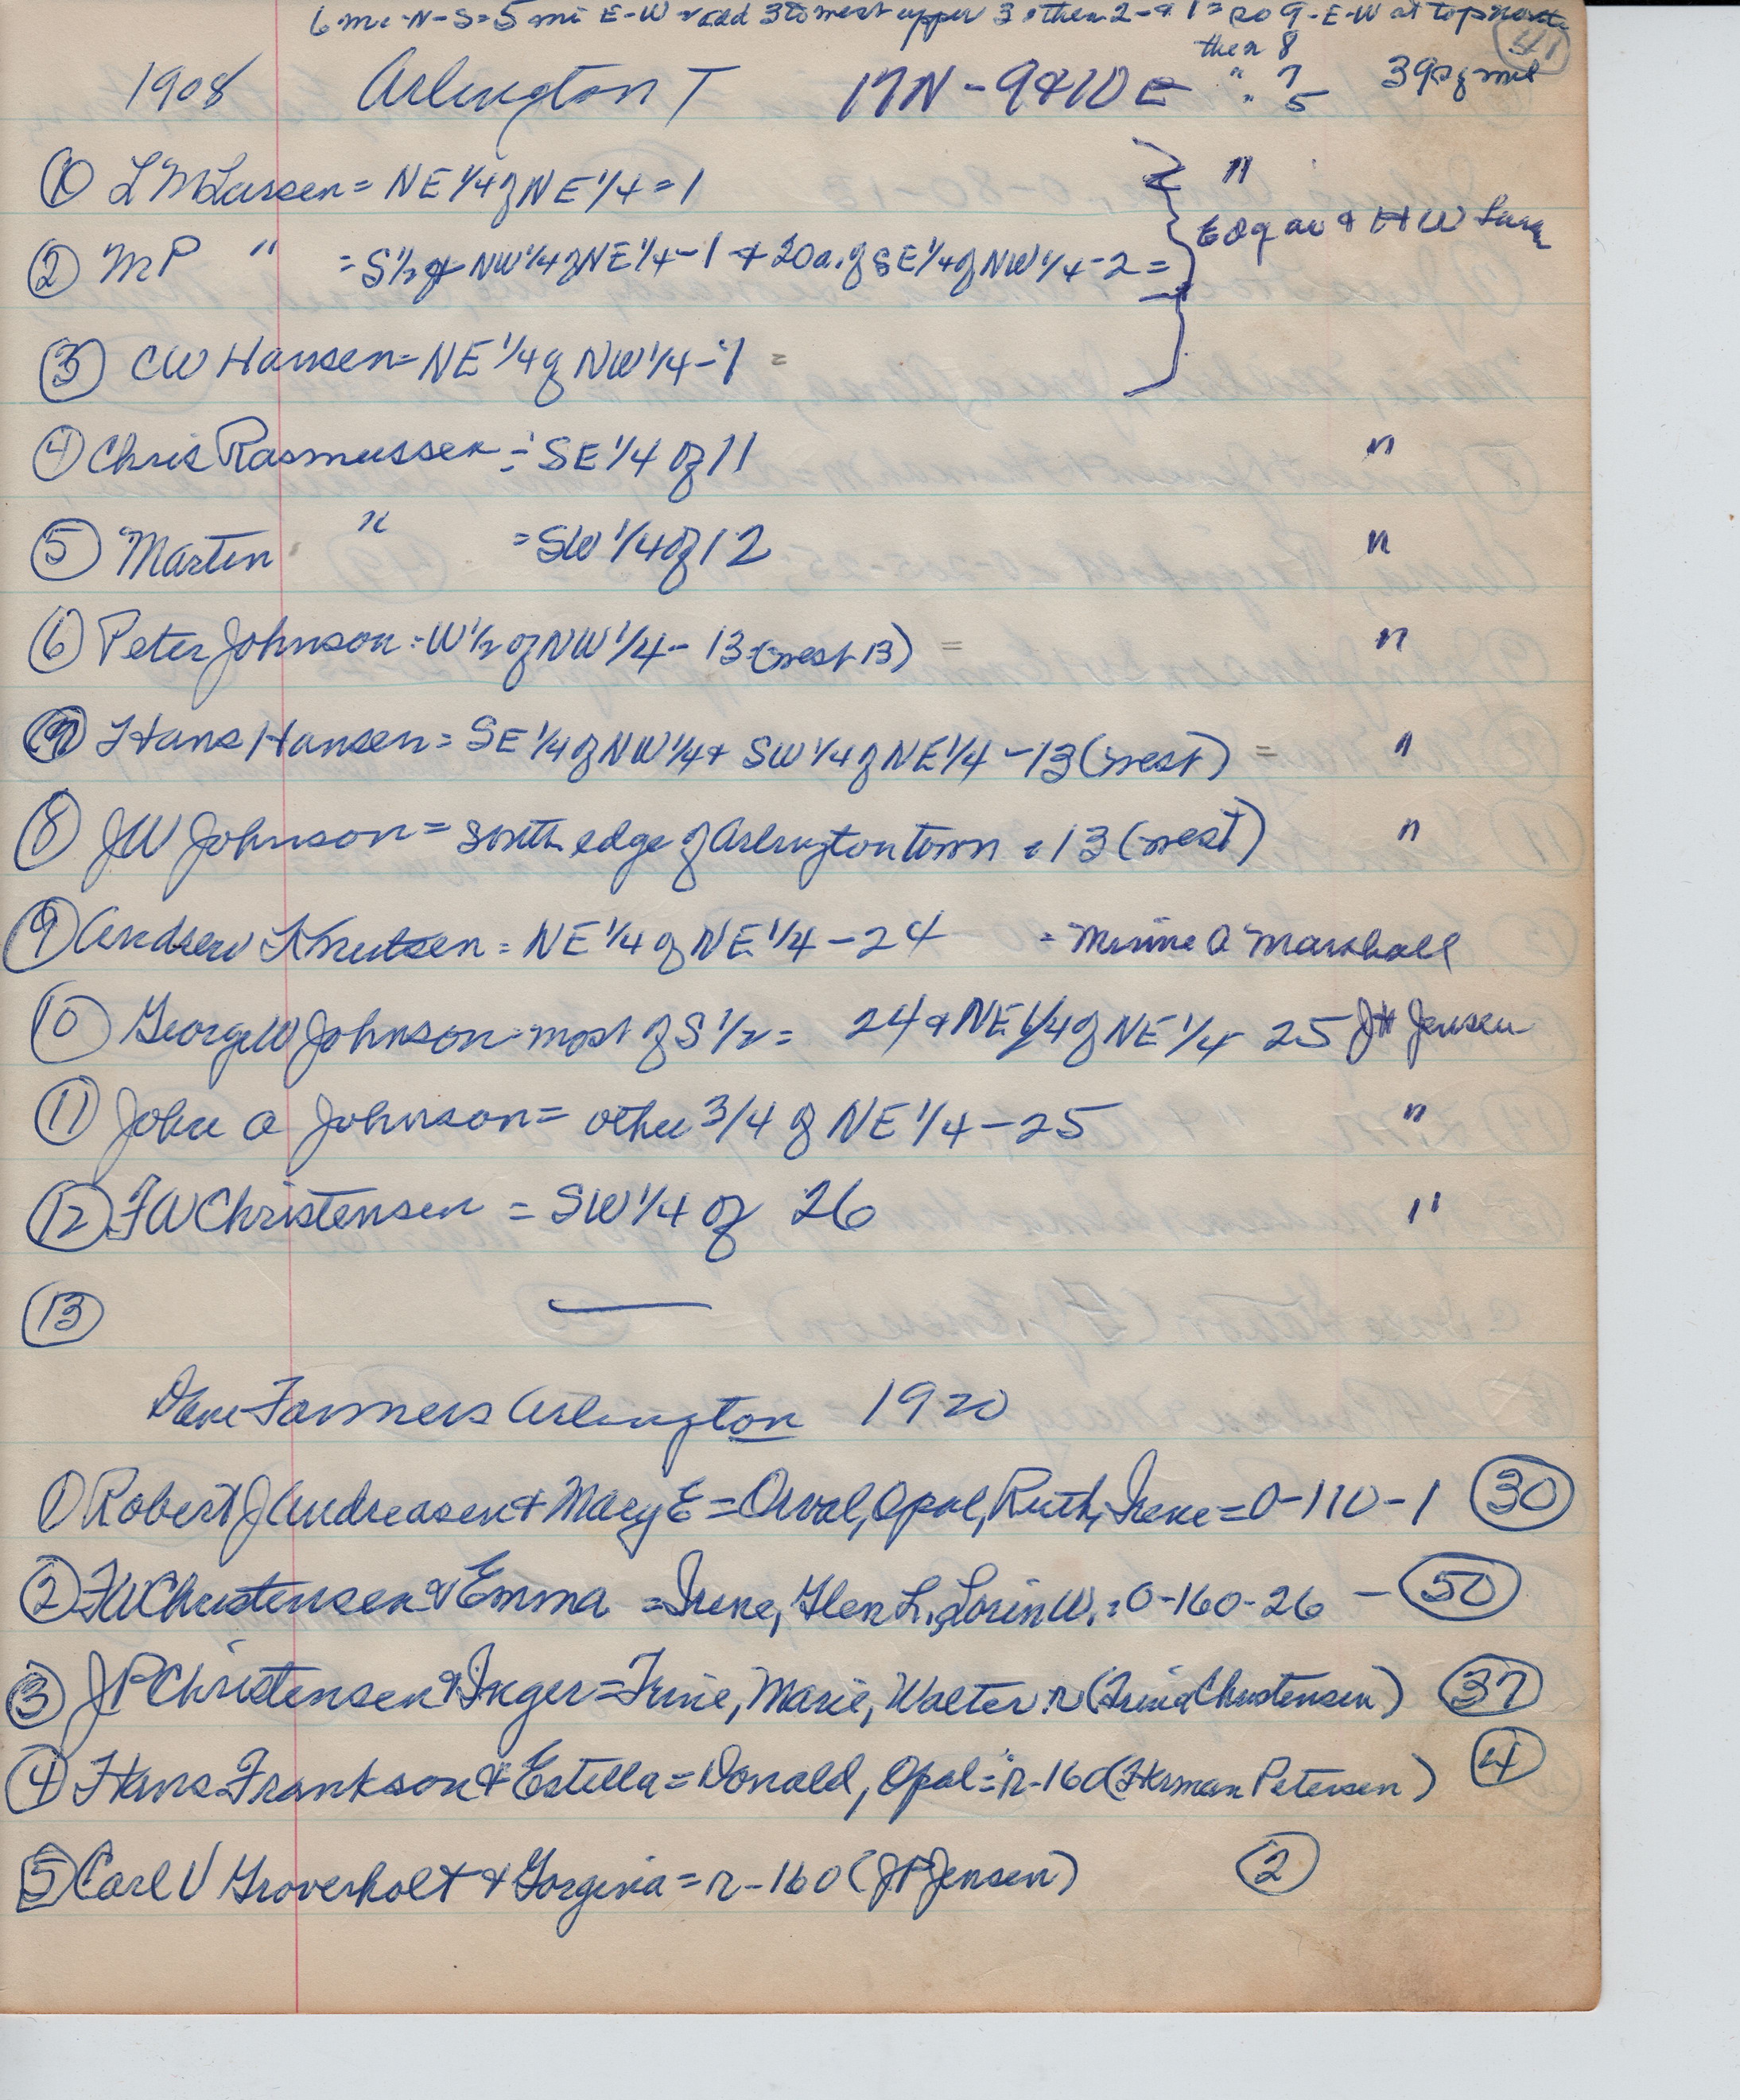 6 mi N-S = 5 mi E-W = add 3 to west upper 3 then 2 & 1 = so 9 - E-W at top north
then 8 41
1908 Arlington T 17N - 9 & 10 E " 7 39 sq mil
" 5
① L M Larsen = NE 1/4 of NE 1/4 = 1 "
② M P " = S 1/2 of NW 1/4 of NE 1/4 - 1 + 20 a. of SE 1/4 of NW 1/4 - 2 = Edgar & HW
③ CW Hansen = NE 1/4 of NW 1/4 - 1 =
④ Chris Rasmussen = SE 1/4 of 11 "
⑤ Martin " = SW 1/4 of 12 "
⑥ Peter Johnson = W 1/2 of NW 1/4 - 13 (west 13) = "
⑦ Hans Hansen = SE 1/4 of NW 1/4 + SW 1/4 of NE 1/4 - 13 (west) = "
⑧ JW Johnson = south edge of Arlington town = 13 (west) "
⑨ Andrew Knutsen = NE 1/4 of NE 1/4 - 24 = Minnie A Marshall
⑩ George W Johnson = most of S 1/2 = 24 & NE 1/4 of NE 1/4 - 25 JH Jensen
⑪ John A Johnson = other 3/4 of NE 1/4 - 25 "
⑫ FW Christensen = SW 1/4 of 26 "
⑬ —
Dane Farmers Arlington 1920
① Robert J Andreasen & Mary E = Orval, Opal, Ruth, Irene = 0-110-1 30
② FW Christensen & Emma = Irene, Glen L., Lorin W. = 0-160-26 - 50
③ JP Christensen & Inger = Trine, Marie, Walter: r (Christensen) 37
④ Hans Frankson & Estella = Donald, Opal = r-160 (Herman Petersen) 4
⑤ Carl V Groverholt & Gorgina = r-160 (JP Jensen) 2